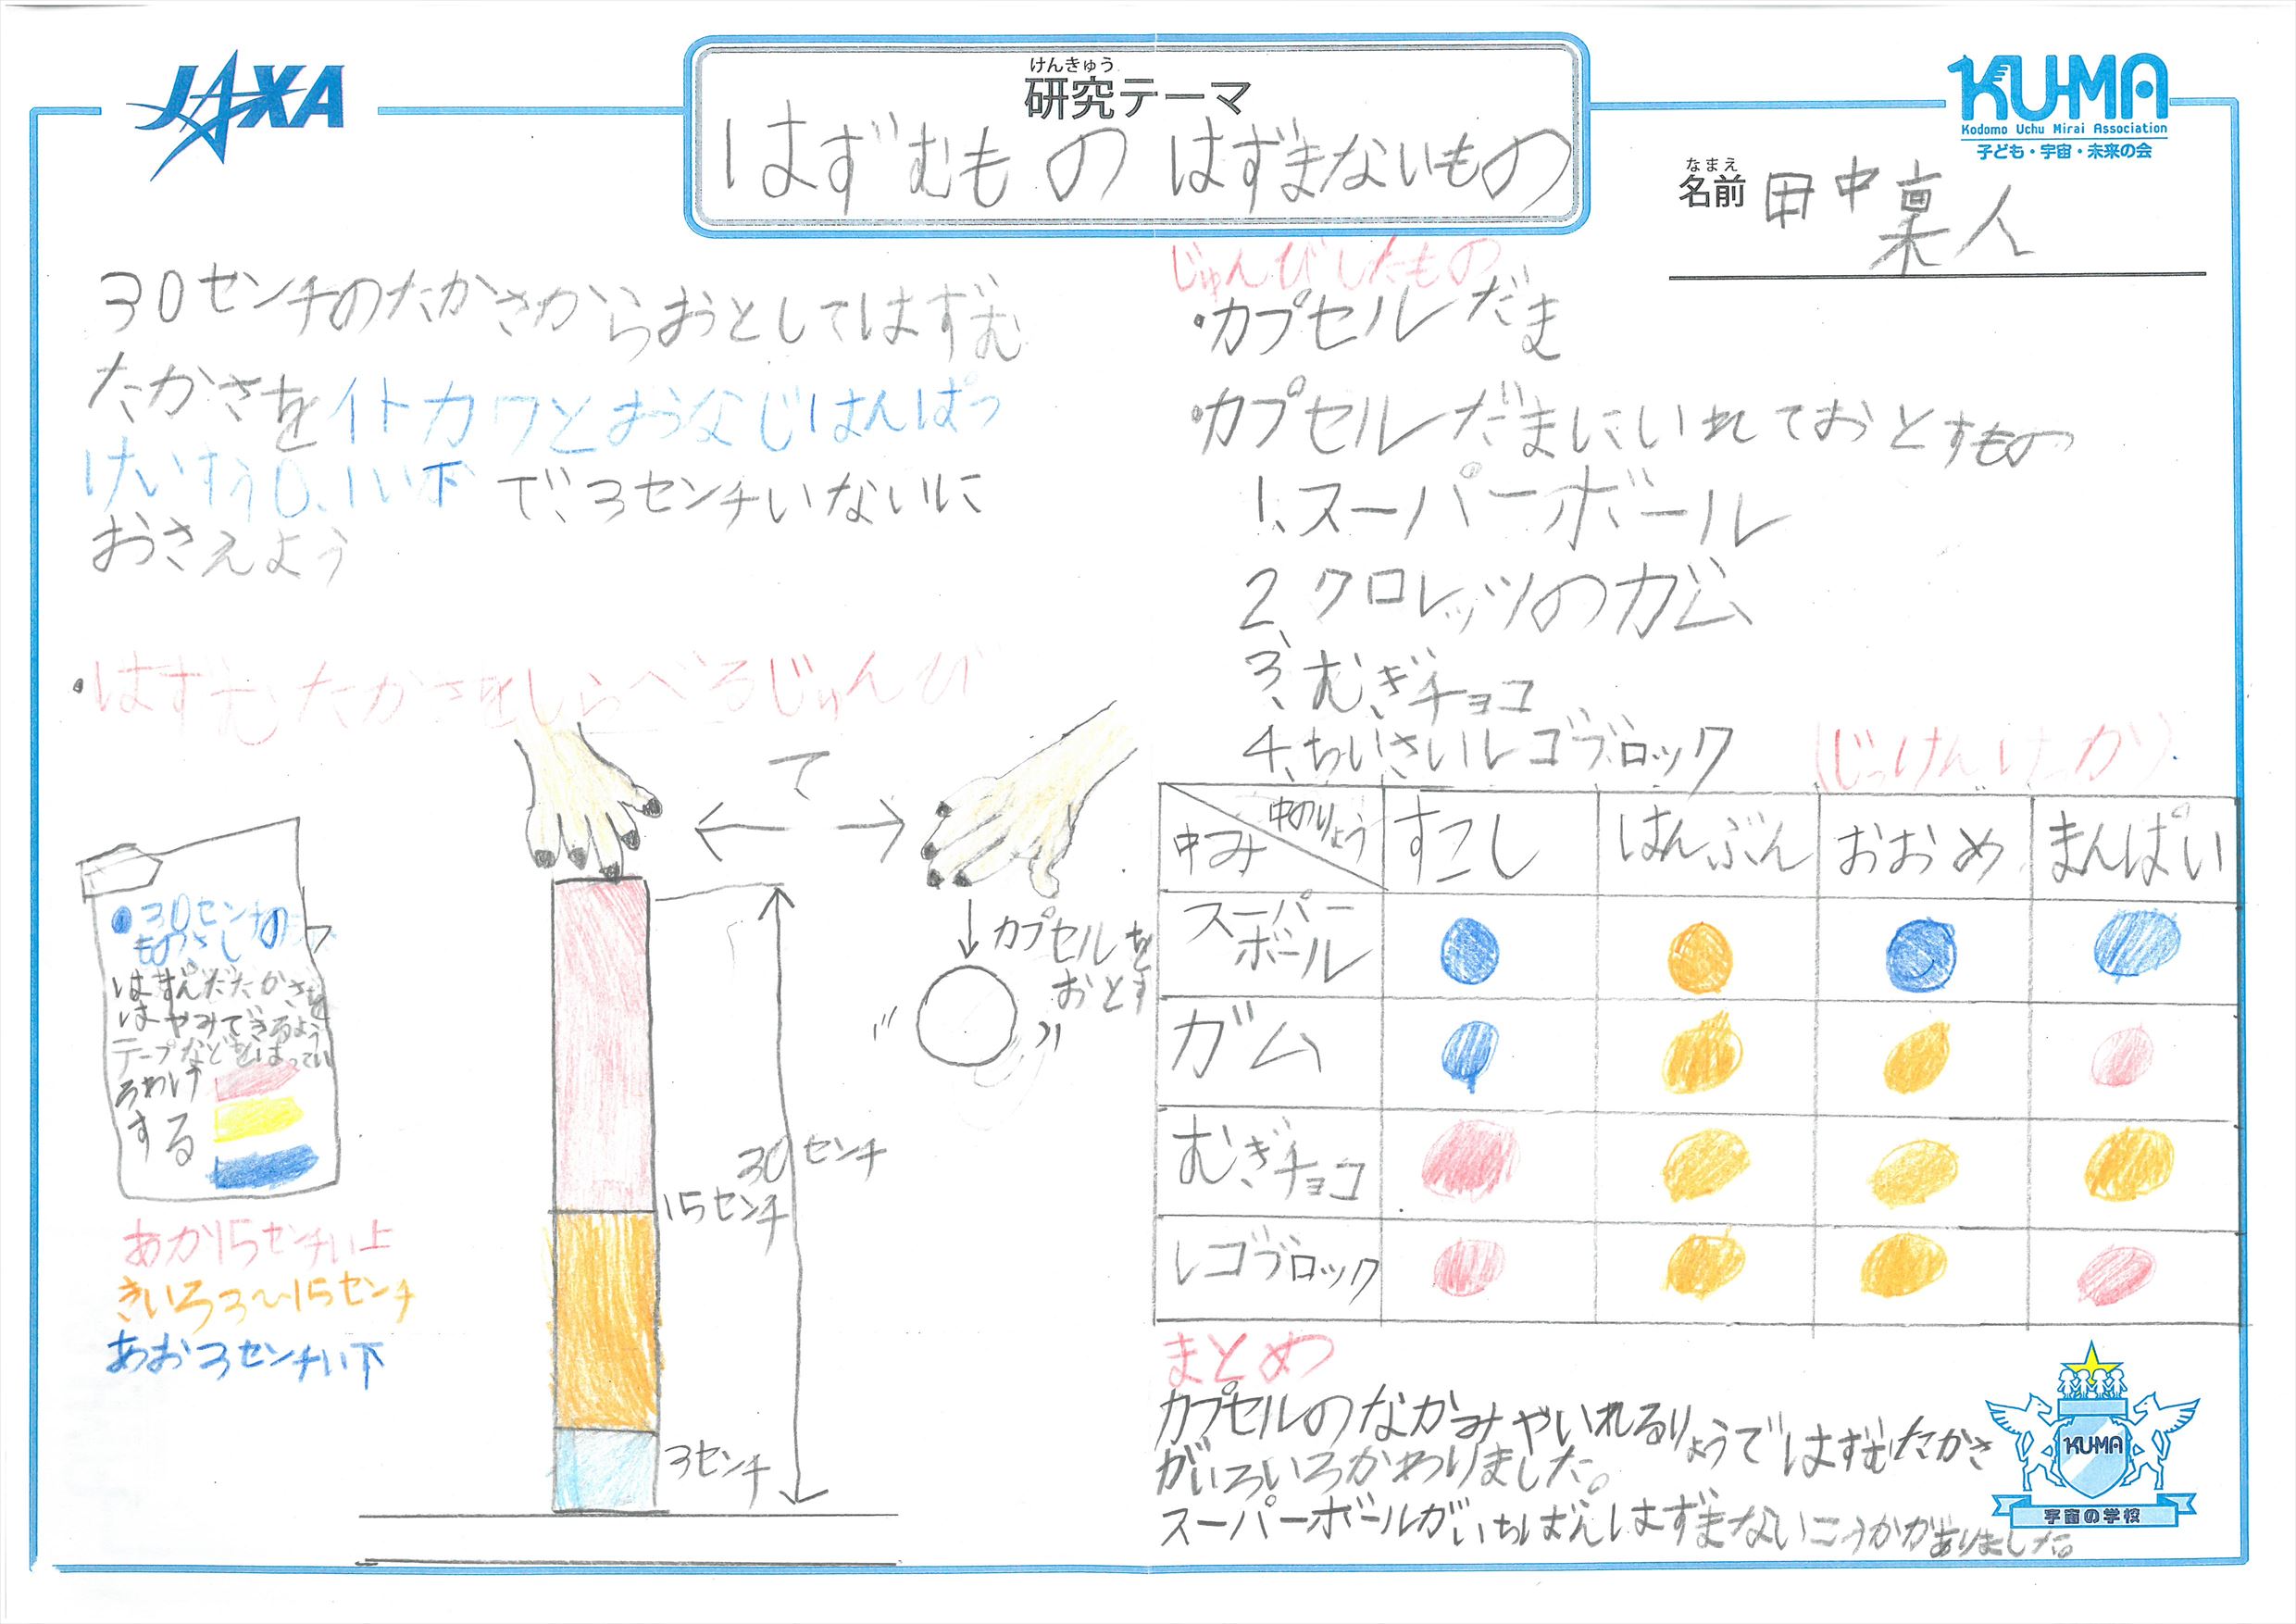 JAXA
けんきゅう
研究テーマ
はずむもの はずまないもの
KU-MA
Kodomo Uchu Mirai Association
子ども・宇宙・未来の会
なまえ
名前 田中稟人
30センチのたかさからおとしてはずむ
たかさをイトカワとおうなじはんぱつ
けいすう0.1い下で、3センチいないに
おさえよう
・はずむたかさをしらべるじゅんび
て
カプセルを
おとす
●30センチの
ものさし
はずんだたかさを
はやみできるよう
テープなどをはってい
ろわけ
する
あか15センチい上
きいろ3〜15センチ
あお3センチい下
30センチ
15センチ
3センチ
じゅんびしたもの
・カプセルだま
・カプセルだまにいれておとすもの
1、スーパーボール
2、クロレッツのガム
3、むぎチョコ
4、ちいさいレゴブロック
(じっけんけっか)
中のりょう
中み すこし はんぶん おおめ まんぱい
スーパー
ボール
ガム
むぎチョコ
レゴブロック
まとめ
カプセルのなかみやいれるりょうではずむたかさ
がいろいろかわりました。
スーパーボールがいちばんはずまないこうかがありました。
KU-MA
宇宙の学校